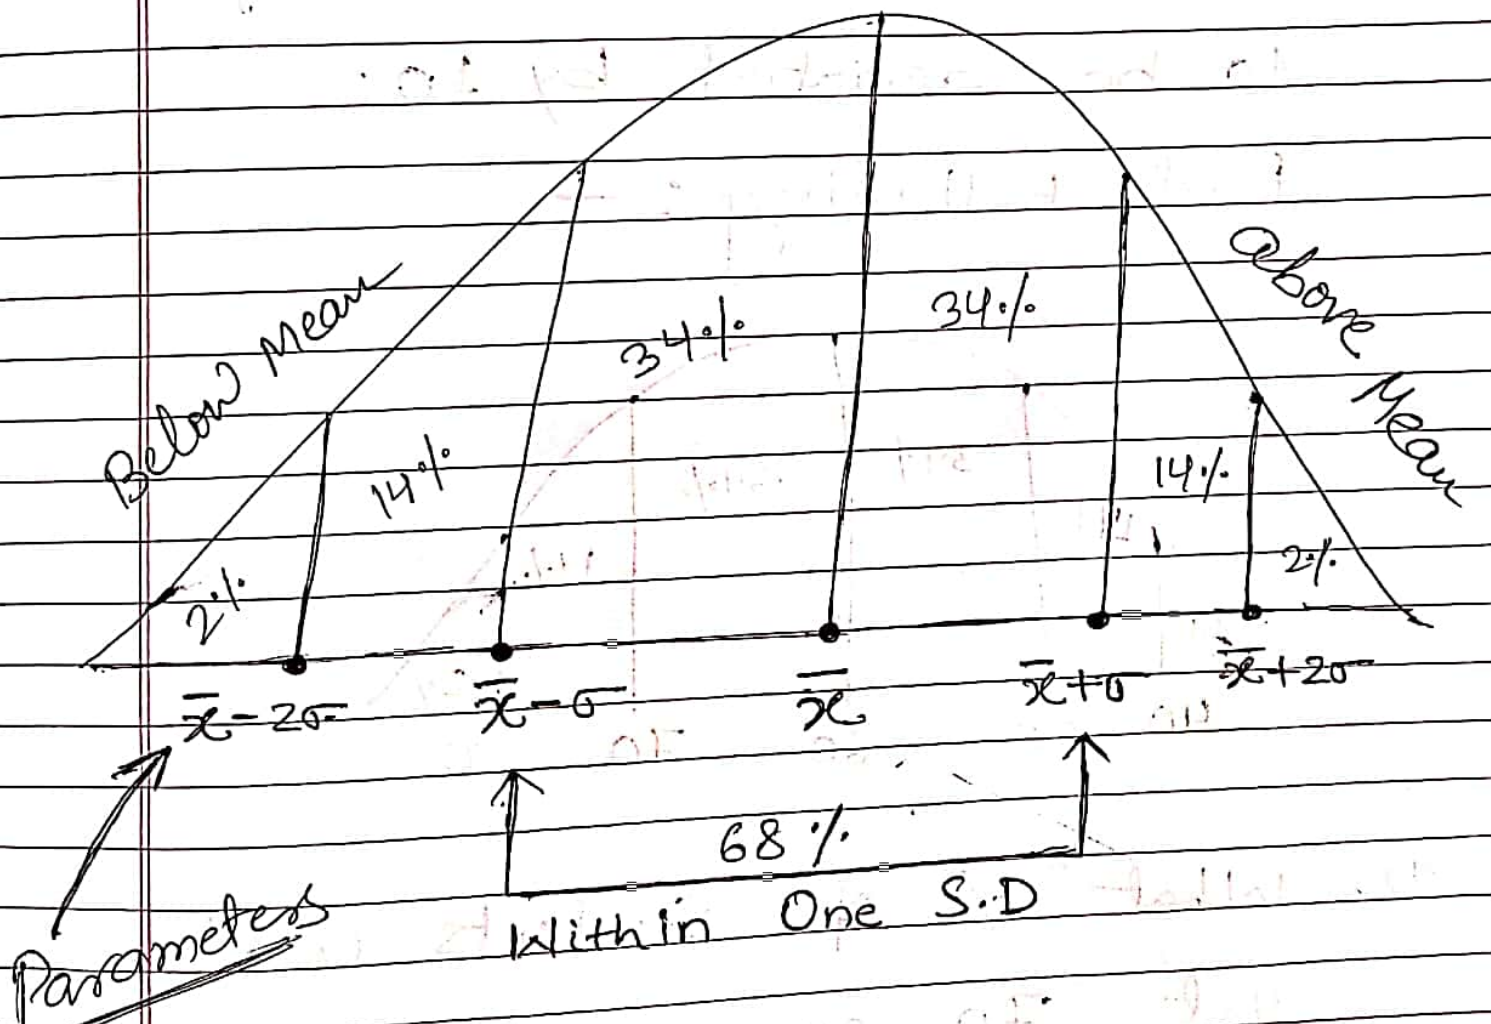 Below Mean
above Mean
34%
34%
14%
14%
2%
2%
x̄-2σ
x̄-σ
x̄
x̄+σ
x̄+2σ
68%
Within One S.D
Parameters